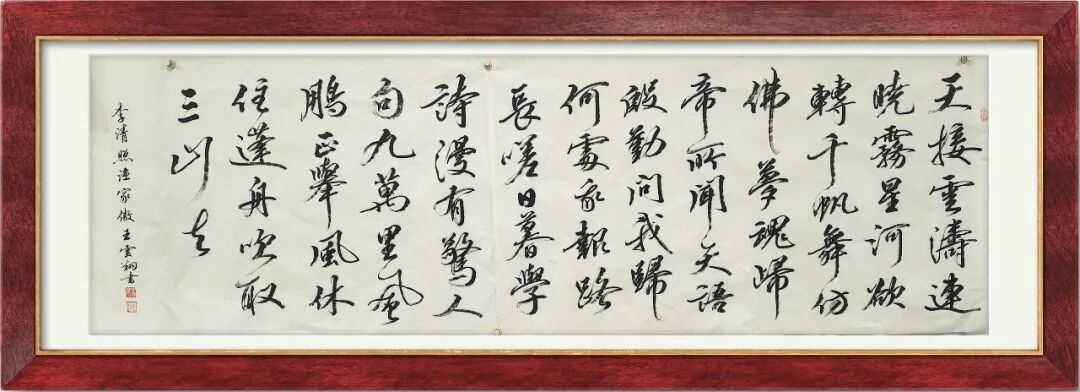 天接雲濤連
曉霧星河欲
轉千帆舞仿
佛夢魂歸
帝所聞天語
殷勤問我歸
何處我報路
長嗟日暮學
詩漫有驚人
句九萬里風
鵬正舉風休
住蓬舟吹取
三山去
李清照漁家傲王雲翔書